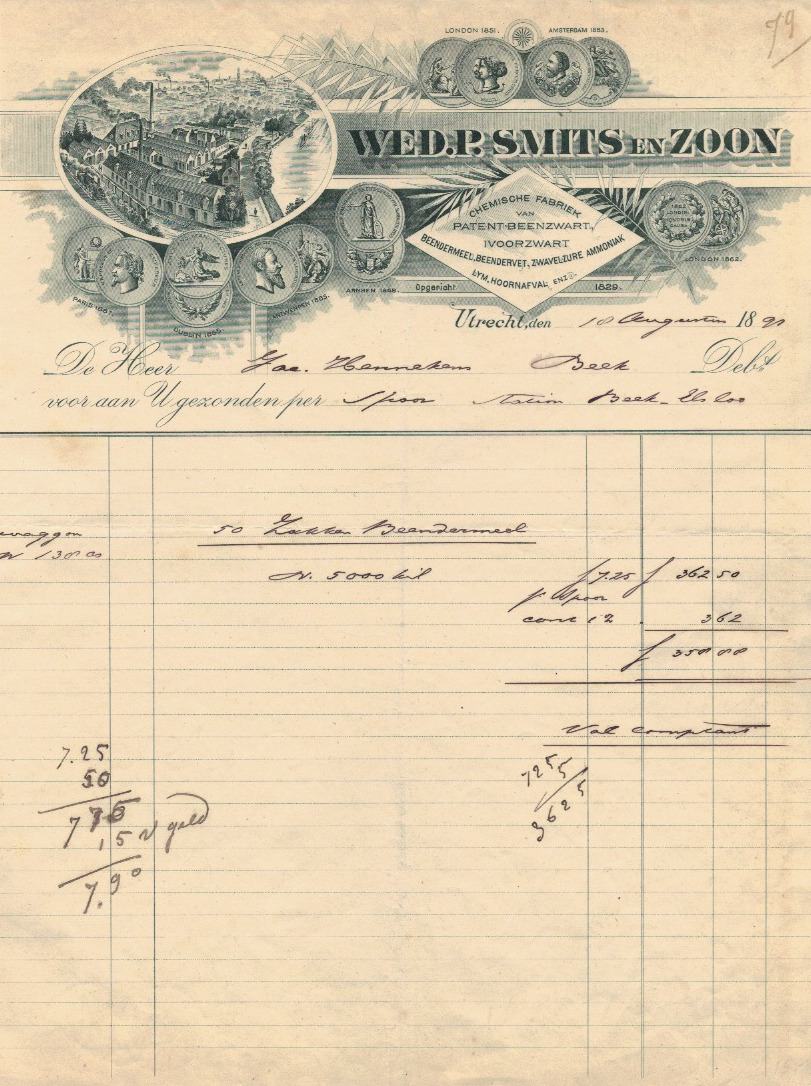 79
LONDON 1851. AMSTERDAM 1883.
WED. P. SMITS EN ZOON
CHEMISCHE FABRIEK
VAN
PATENT-BEENZWART,
IVOORZWART
BEENDERMEEL, BEENDERVET, ZWAVELZURE AMMONIAK
LYM, HOORNAFVAL, ENZ.
LONDON 1862.
PARIS 1867.
DUBLIN 1865.
ANTWERPEN 1885.
ARNHEM 1868.
Opgericht 1829.
Utrecht, den 18 Augustus 1891
De Heer Jac. Hennekens Beek Debt
voor aan U gezonden per Spoor Station Beek-Elsloo
waggon
50 Zakken Beendermeel
N. 5000 kil f 7.25 f 362 50
p. Spoor
cont 12 . 3 62
f 358 88
Val comptant
7.25
50
7 75
,15 v geld
7.90
725
5
3625